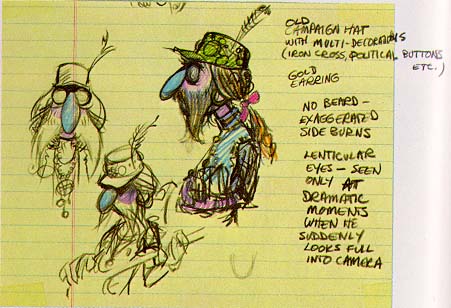 OLD
CAMPAIGN HAT
WITH MULTI-DECORATIONS
(IRON CROSS, POLITICAL BUTTONS
ETC.)
GOLD
EARRING
NO BEARD -
EXAGGERATED
SIDE BURNS
LENTICULAR
EYES - SEEN
ONLY AT
DRAMATIC
MOMENTS
WHEN HE
SUDDENLY
LOOKS FULL
INTO CAMERA